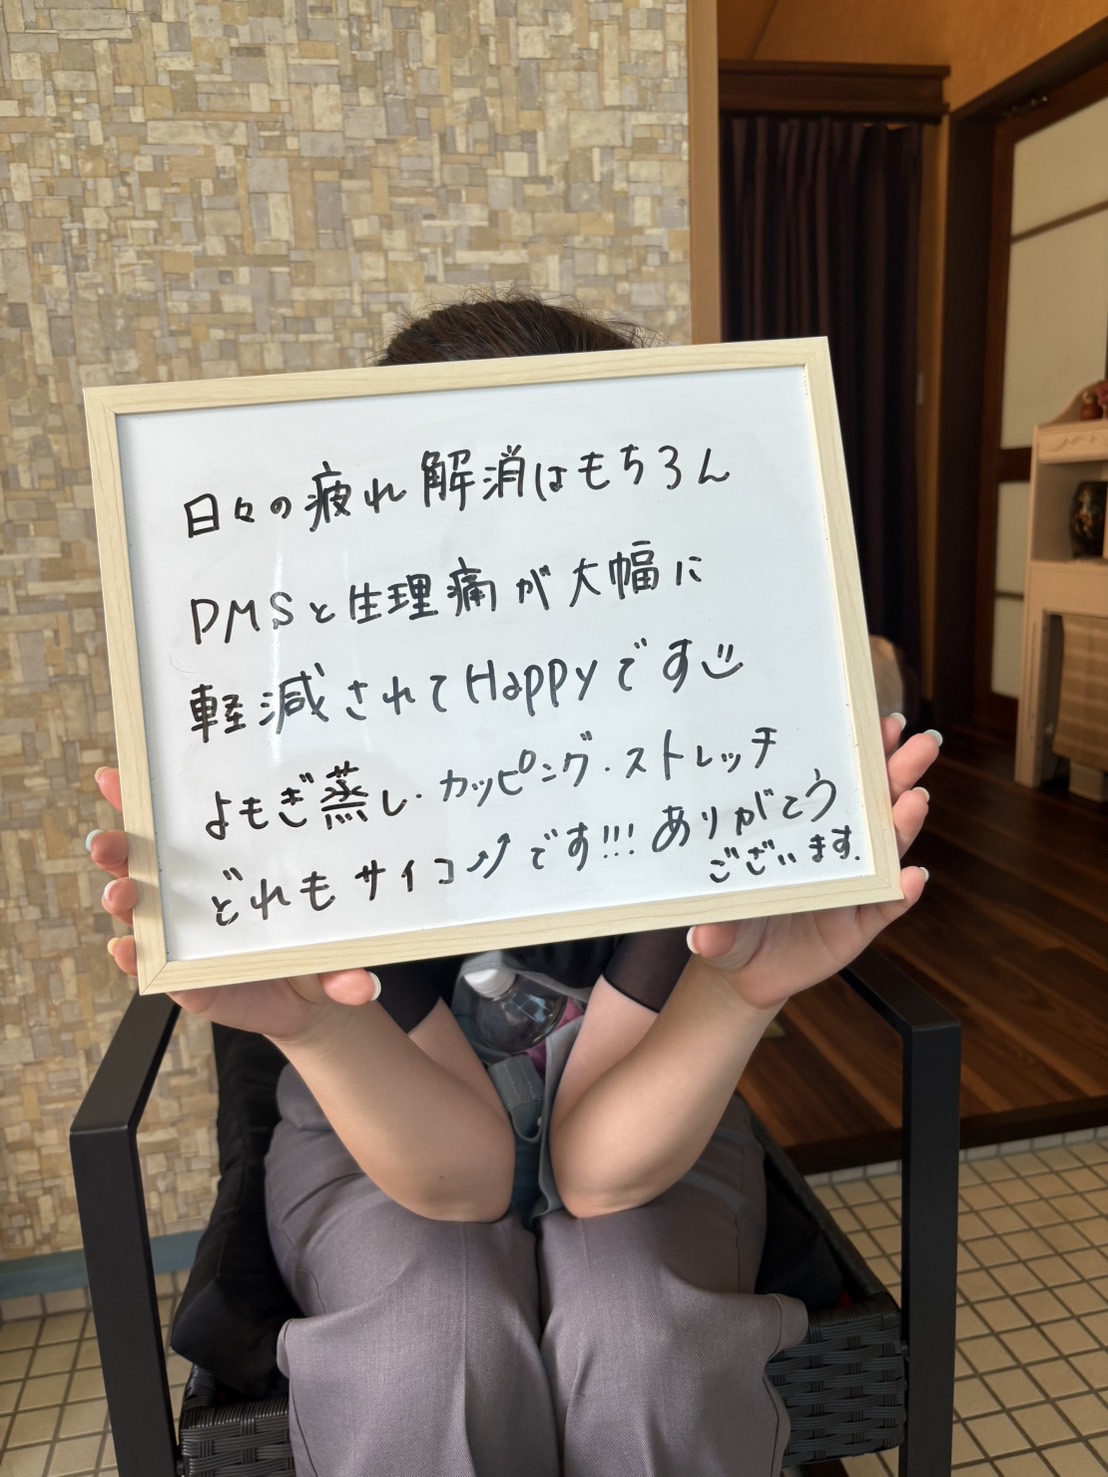 日々の疲れ解消はもちろん
PMSと生理痛が大幅に
軽減されてHappyです
よもぎ蒸し・カッピング・ストレッチ
どれもサイコーです!!! ありがとう
ございます.